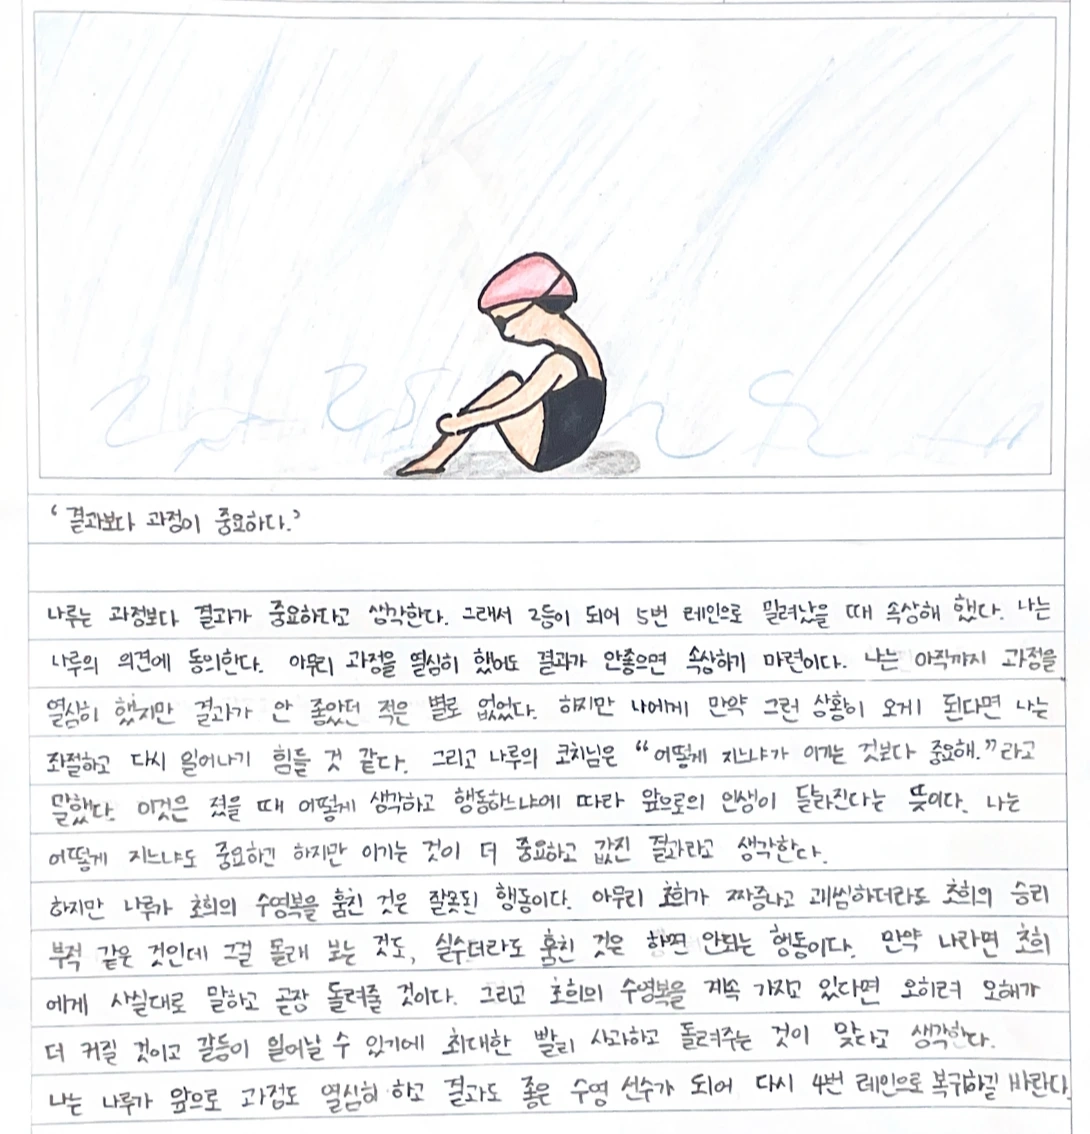 ‘결과보다 과정이 중요하다.’
나루는 과정보다 결과가 중요하다고 생각한다. 그래서 2등이 되어 5번 레인으로 밀려났을 때 속상해 했다. 나는
나루의 의견에 동의한다. 아무리 과정을 열심히 했어도 결과가 안좋으면 속상하기 마련이다. 나는 아직까지 과정을
열심히 했지만 결과가 안 좋았던 적은 별로 없었다. 하지만 나에게 만약 그런 상황이 오게 된다면 나는
좌절하고 다시 일어나기 힘들 것 같다. 그리고 나루의 코치님은 “어떻게 지느냐가 이기는 것보다 중요해.”라고
말했다. 이것은 졌을 때 어떻게 생각하고 행동하느냐에 따라 앞으로의 인생이 달라진다는 뜻이다. 나는
어떻게 지느냐도 중요하긴 하지만 이기는 것이 더 중요하고 값진 결과라고 생각한다.
하지만 나루가 초희의 수영복을 훔친 것은 잘못된 행동이다. 아무리 초희가 짜증나고 괘씸하더라도 초희의 승리
부적 같은 것인데 그걸 몰래 보는 것도, 실수더라도 훔친 것은 하면 안되는 행동이다. 만약 나라면 초희
에게 사실대로 말하고 곧장 돌려줄 것이다. 그리고 초희의 수영복을 계속 가지고 있다면 오히려 오해가
더 커질 것이고 갈등이 일어날 수 있기에 최대한 빨리 사과하고 돌려주는 것이 맞다고 생각한다.
나는 나루가 앞으로 과정도 열심히 하고 결과도 좋은 수영 선수가 되어 다시 4번 레인으로 복귀하길 바란다.